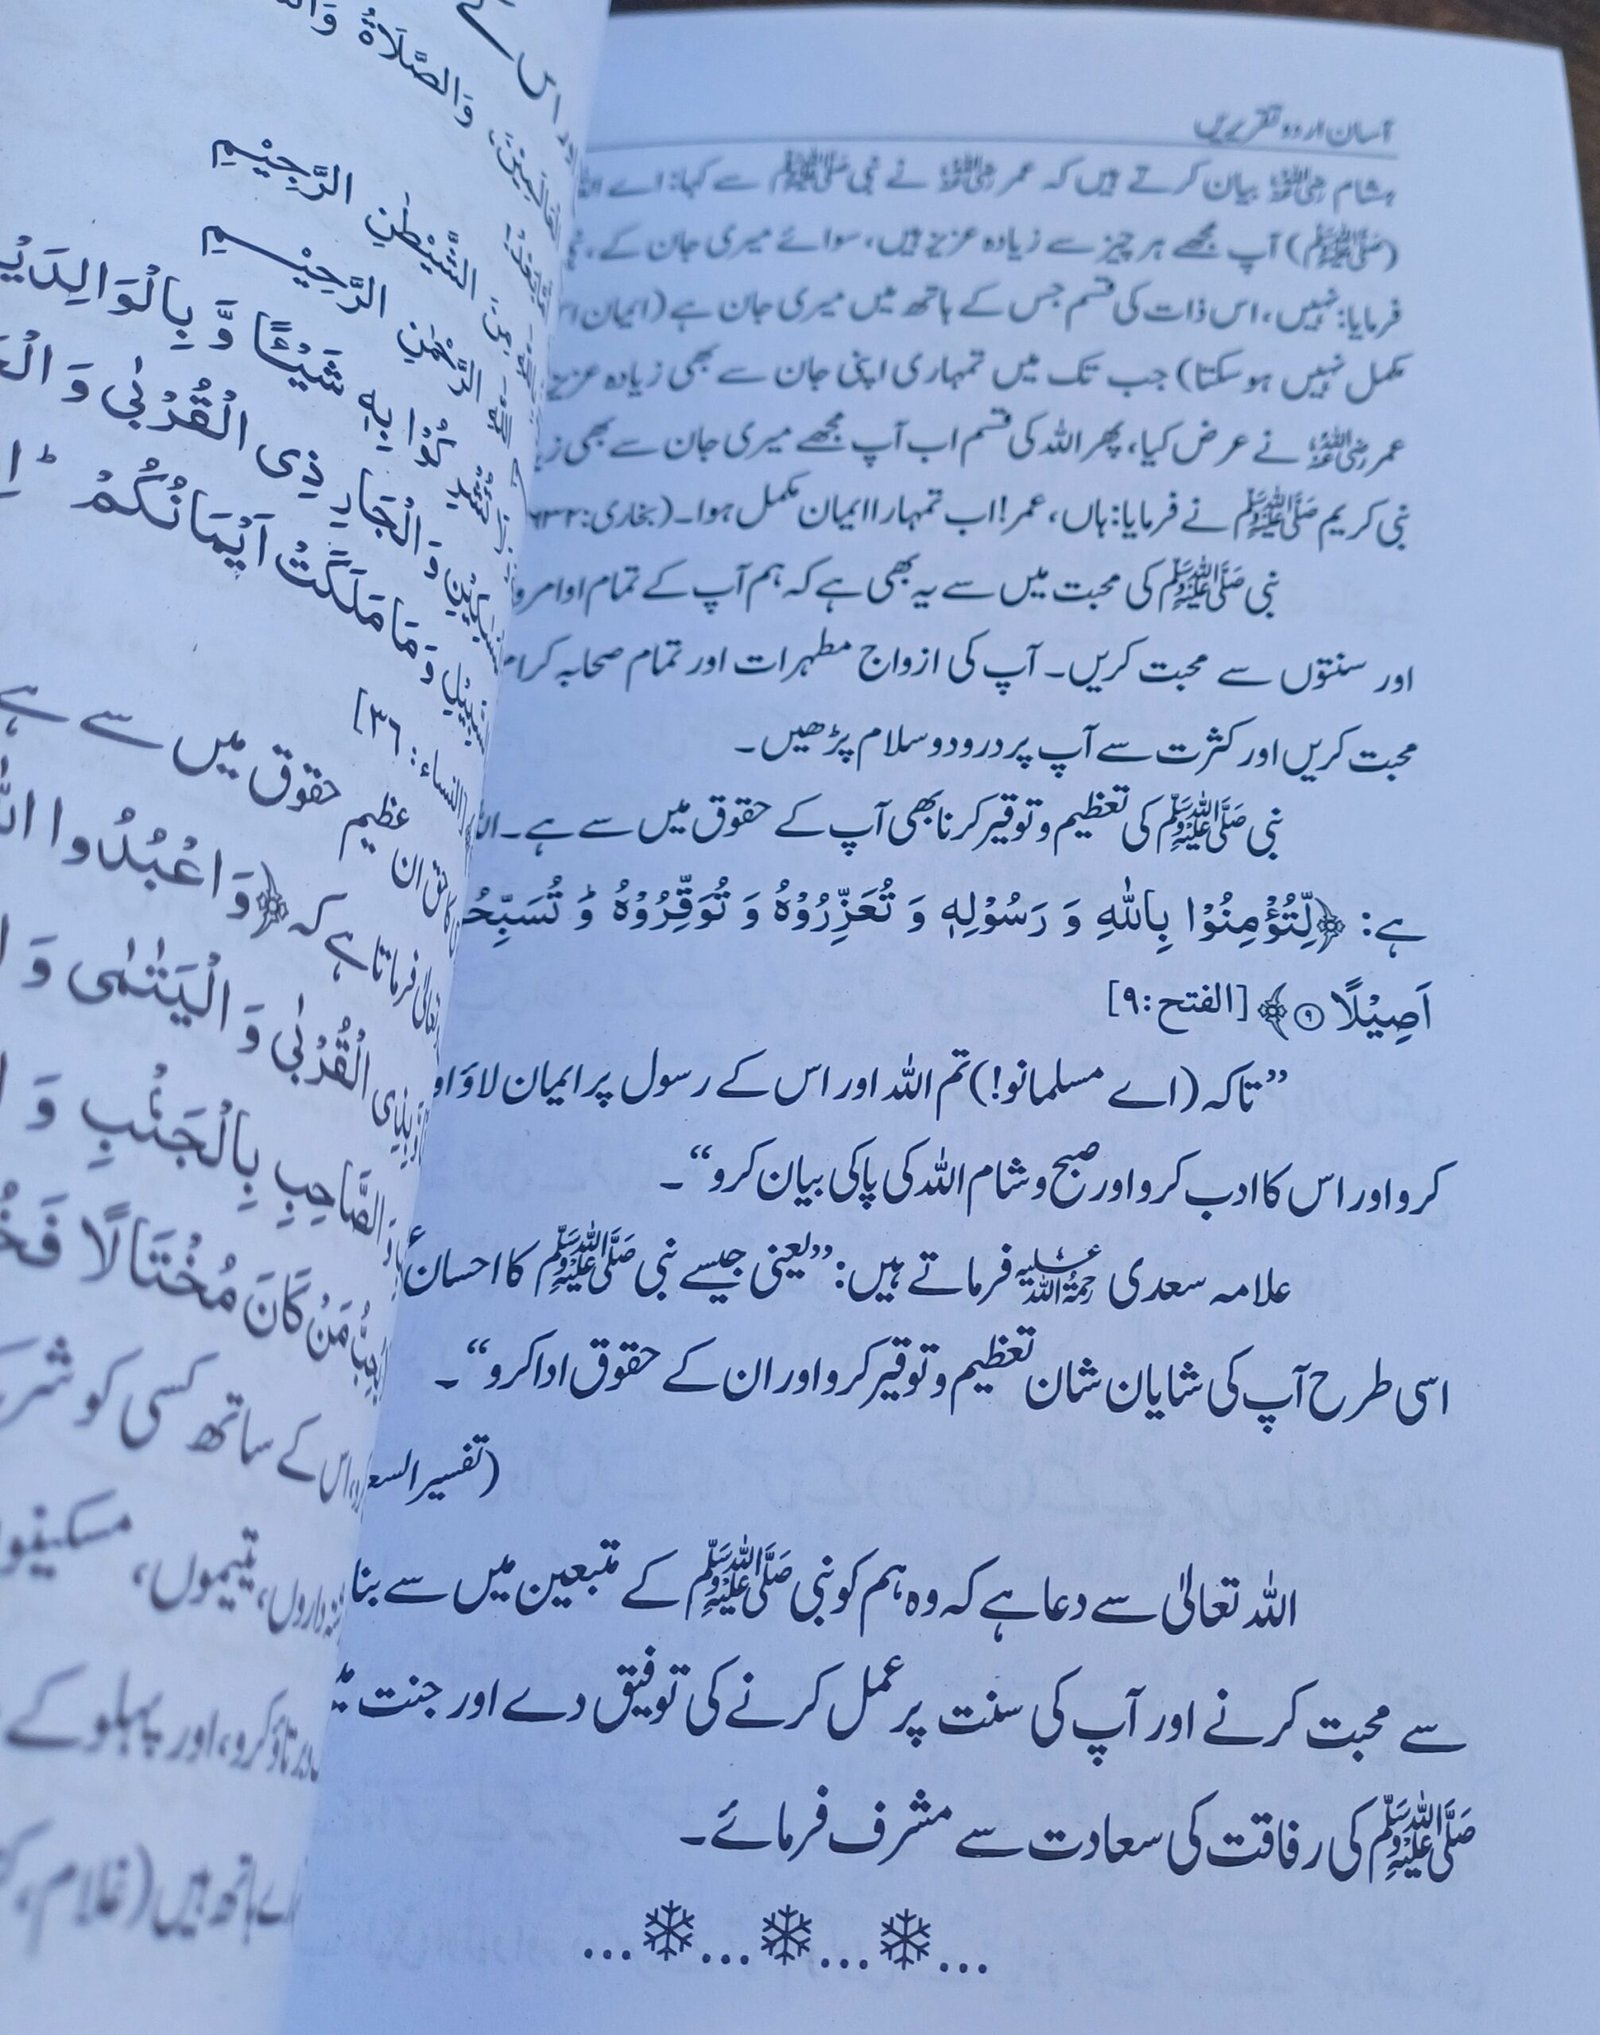 آسان اردو تقریریں
ہشام رضی اللہ عنہ بیان کرتے ہیں کہ عمر رضی اللہ عنہ نے نبی ﷺ سے کہا: اے
(ﷺ) آپ مجھے ہر چیز سے زیادہ عزیز ہیں، سوائے میری جان کے،
فرمایا: نہیں، اس ذات کی قسم جس کے ہاتھ میں میری جان ہے (ایمان
مکمل نہیں ہو سکتا) جب تک میں تمہاری اپنی جان سے بھی زیادہ عزیز
عمر رضی اللہ عنہ نے عرض کیا، پھر اللہ کی قسم اب آپ مجھے میری جان سے بھی
نبی کریم ﷺ نے فرمایا: ہاں، عمر! اب تمہارا ایمان مکمل ہوا۔ (بخاری:
نبی ﷺ کی محبت میں سے یہ بھی ہے کہ ہم آپ کے تمام اوامر و
اور سنتوں سے محبت کریں۔ آپ کی ازواج مطہرات اور تمام صحابہ کرام
محبت کریں اور کثرت سے آپ پر درود و سلام پڑھیں۔
نبی ﷺ کی تعظیم و توقیر کرنا بھی آپ کے حقوق میں سے ہے۔
ہے: ﴿لِّتُؤْمِنُوْا بِاللّٰهِ وَ رَسُوْلِهٖ وَ تُعَزِّرُوْهُ وَ تُوَقِّرُوْهُ ؕ وَ
اَصِيْلًا ۹﴾ [الفتح: ۹]
”تاکہ (اے مسلمانو!) تم اللہ اور اس کے رسول پر ایمان لاؤ
کرو اور اس کا ادب کرو اور صبح و شام اللہ کی پاکی بیان کرو“۔
علامہ سعدی رحمۃ اللہ علیہ فرماتے ہیں: ”یعنی جیسے نبی ﷺ کا احسان
اسی طرح آپ کی شایان شان تعظیم و توقیر کرو اور ان کے حقوق ادا کرو“۔
(تفسیر
اللہ تعالیٰ سے دعا ہے کہ وہ ہم کو نبی ﷺ کے متبعین میں سے بنا
سے محبت کرنے اور آپ کی سنت پر عمل کرنے کی توفیق دے اور جنت
ﷺ کی رفاقت کی سعادت سے مشرف فرمائے۔
...❄...❄...❄...
اس کے
وَالصَّلَاةُ
مِنَ الشَّيْطٰنِ الرَّجِيْمِ
الرَّحْمٰنِ الرَّحِيْمِ
بِهٖ شَيْـًٔا وَّ بِالْوَالِدَيْنِ
وَ الْجَارِ ذِي الْقُرْبٰى وَ
وَ مَا مَلَكَتْ اَيْمَانُكُمْ ؕ
النساء: ۳۶]
ان عظیم حقوق میں سے ہے
فرماتا ہے کہ ﴿وَ اعْبُدُوا
الْقُرْبٰى وَ الْيَتٰمٰى وَ
الصَّاحِبِ بِالْجَنْۢبِ وَ
مَنْ كَانَ مُخْتَالًا
اس کے ساتھ کسی کو
یتیموں،
کرو، اور پہلو کے
ہاتھ ہیں (غلام،